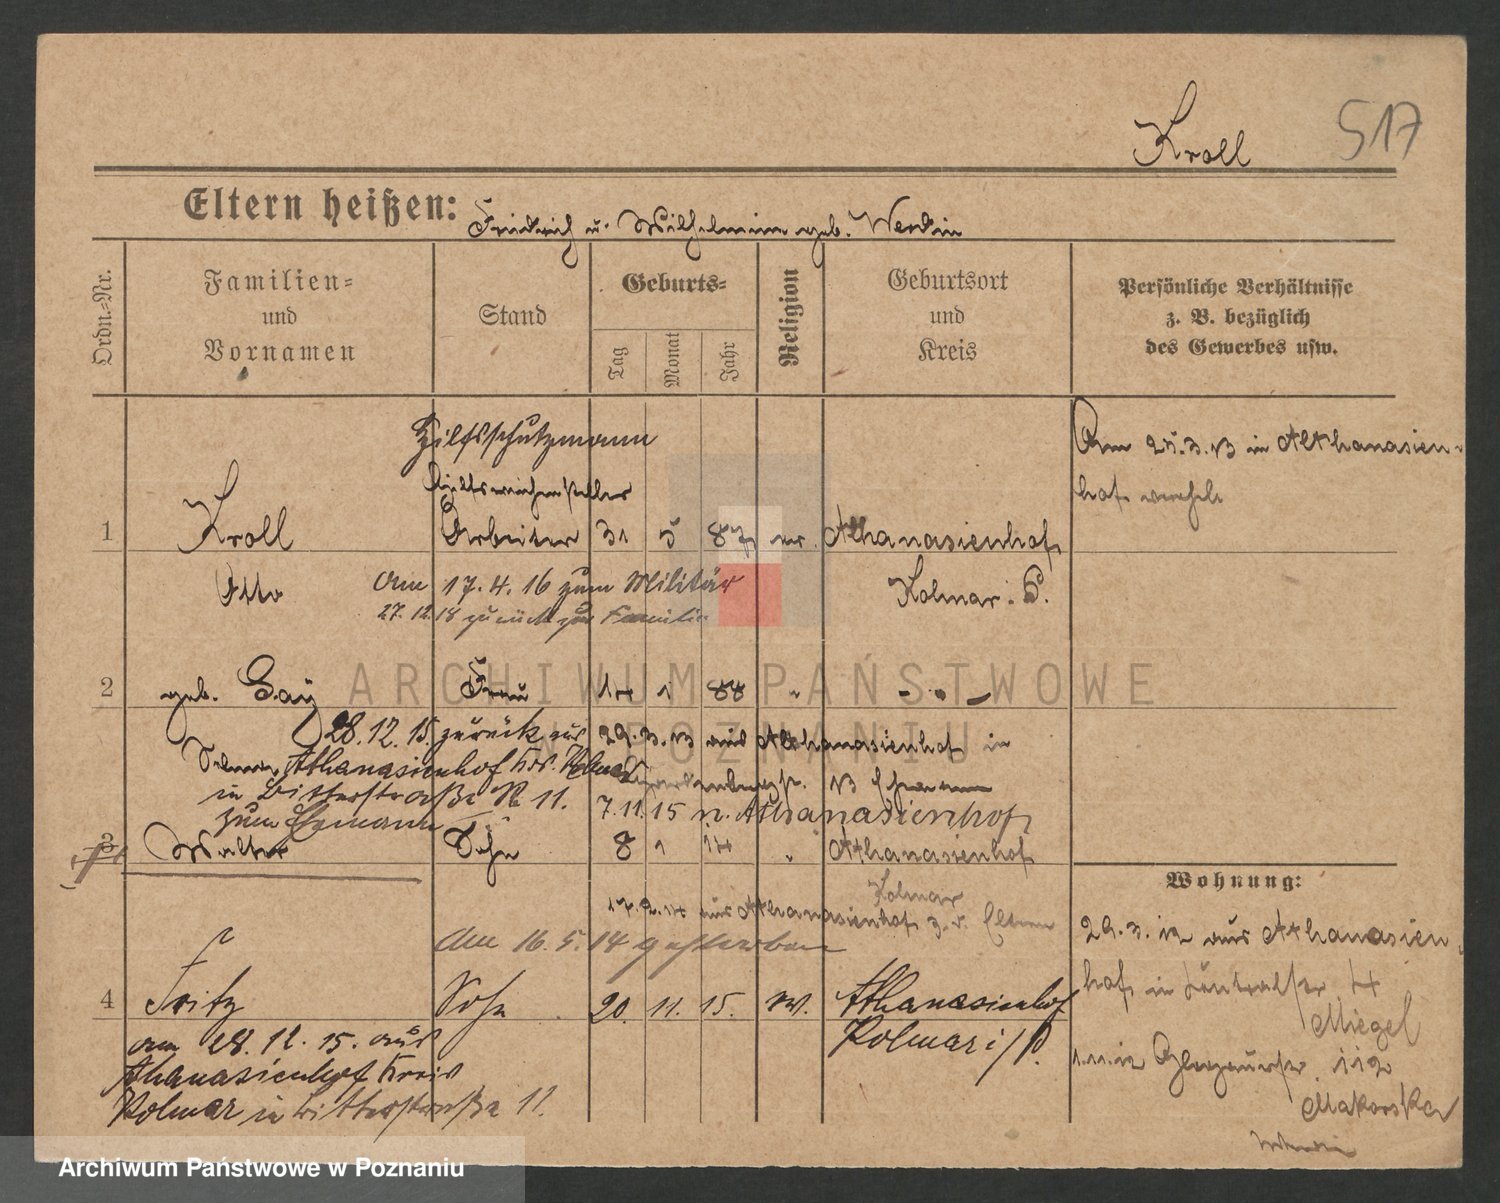 Kroll 517
Eltern heißen: Friedrich u. Wilhelmine geb. Werdin
Ordn.-Nr.
Familien=
und
Vornamen
Stand
Geburts=
Tag
Monat
Jahr
Religion
Geburtsort
und
Kreis
Persönliche Verhältnisse
z. B. bezüglich
des Gewerbes usw.
Hilfsschutzmann
Hilfsweichensteller
1 Kroll Arbeiter 31 5 87 ev. Athanasienhof
Am 25.3.13 in Athanasien-
hof verehel.
Otto Am 17.4.16 zum Militär Kolmar i. P.
27.12.18 zurück zur Familie
2 geb. Gay Frau 14 1 88 " - " -
28.12.15. zurück aus
Athanasienhof Krs. Kolmar
in Bitterstraße No 11.
zum Ehemann
29.3.13 aus Athanasienhof in
13 Ehemann
7.11.15 n. Athanasienhof
3 Walter Sohn 8 1 14 " Athanasienhof
Kolmar
17.2.14 aus Athanasienhof z. d. Eltern
Am 16.5.14 gestorben
4 Fritz Sohn 20. 11. 15. ev. Athanasienhof
Kolmar i/P.
am 28.12.15. aus
Athanasienhof Kreis
Kolmar in Bitterstraße 11.
Wohnung:
29.3. aus Athanasien-
hof in 4
Miegel
Glogauerstr. 112
Makorska
ARCHIWUM PAŃSTWOWE
W POZNANIU
Archiwum Państwowe w Poznaniu